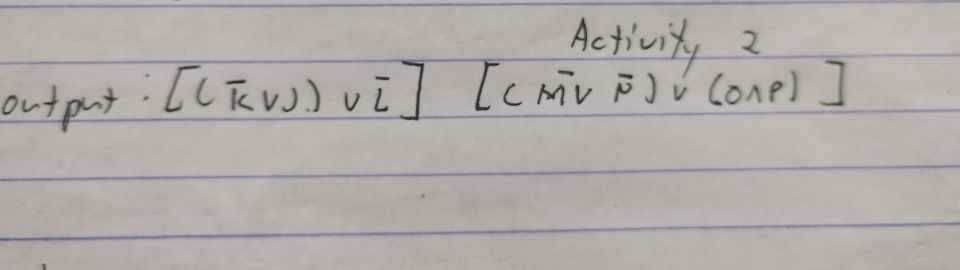 Activity 2
output : [(K̄ ∨ J) ∨ L̄] [(M̄ ∨ N̄) ∨ (O ∧ P)]